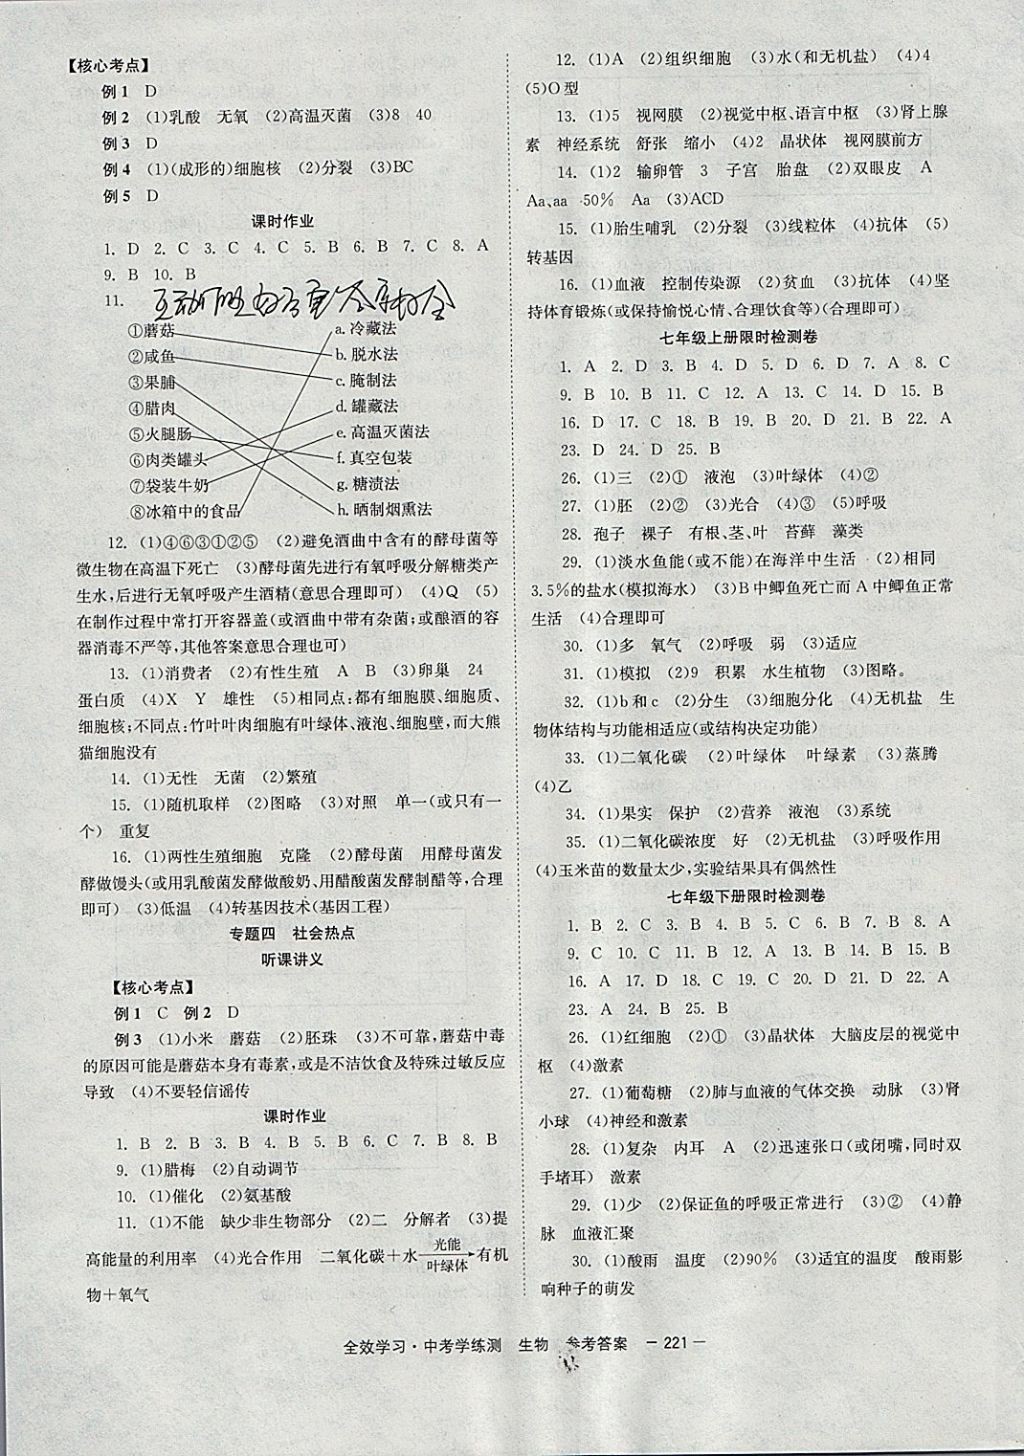 【核心考点】
例1 D
例2 (1)乳酸 无氧 (2)高温灭菌 (3)8 40
例3 D
例4 (1)(成形的)细胞核 (2)分裂 (3)BC
例5 D
课时作业
1. D 2. C 3. C 4. C 5. B 6. B 7. C 8. A
9. B 10. B
11.
①蘑菇 a. 冷藏法
②咸鱼 b. 脱水法
③果脯 c. 腌制法
④腊肉 d. 罐藏法
⑤火腿肠 e. 高温灭菌法
⑥肉类罐头 f. 真空包装
⑦袋装牛奶 g. 糖渍法
⑧冰箱中的食品 h. 晒制烟熏法
12. (1)④⑥③①②⑤ (2)避免酒曲中含有的酵母菌等
微生物在高温下死亡 (3)酵母菌先进行有氧呼吸分解糖类产
生水,后进行无氧呼吸产生酒精(意思合理即可) (4)Q (5)
在制作过程中常打开容器盖(或酒曲中带有杂菌;或酿酒的容
器消毒不严等,其他答案意思合理也可)
13. (1)消费者 (2)有性生殖 A B (3)卵巢 24
蛋白质 (4)X Y 雄性 (5)相同点:都有细胞膜、细胞质、
细胞核;不同点:竹叶叶肉细胞有叶绿体、液泡、细胞壁,而大熊
猫细胞没有
14. (1)无性 无菌 (2)繁殖
15. (1)随机取样 (2)图略 (3)对照 单一(或只有一
个) 重复
16. (1)两性生殖细胞 克隆 (2)酵母菌 用酵母菌发
酵做馒头(或用乳酸菌发酵做酸奶、用醋酸菌发酵制醋等,合理
即可) (3)低温 (4)转基因技术(基因工程)
专题四 社会热点
听课讲义
【核心考点】
例1 C 例2 D
例3 (1)小米 蘑菇 (2)胚珠 (3)不可靠,蘑菇中毒
的原因可能是蘑菇本身有毒素,或是不洁饮食及特殊过敏反应
导致 (4)不要轻信谣传
课时作业
1. B 2. B 3. B 4. B 5. B 6. C 7. B 8. B
9. (1)腊梅 (2)自动调节
10. (1)催化 (2)氨基酸
11. (1)不能 缺少非生物部分 (2)二 分解者 (3)提
高能量的利用率 (4)光合作用 二氧化碳+水 光能 叶绿体 →有机
物+氧气
12. (1)A (2)组织细胞 (3)水(和无机盐) (4)4
(5)O型
13. (1)5 视网膜 (2)视觉中枢、语言中枢 (3)肾上腺
素 神经系统 舒张 缩小 (4)2 晶状体 视网膜前方
14. (1)2 输卵管 3 子宫 胎盘 (2)双眼皮 A
Aa、aa 50% Aa (3)ACD
15. (1)胎生哺乳 (2)分裂 (3)线粒体 (4)抗体 (5)
转基因
16. (1)血液 控制传染源 (2)贫血 (3)抗体 (4)坚
持体育锻炼(或保持愉悦心情、合理饮食等)(合理即可)
七年级上册限时检测卷
1. A 2. D 3. B 4. D 5. D 6. D 7. A 8. C
9. B 10. B 11. C 12. A 13. C 14. D 15. B
16. D 17. C 18. B 19. B 20. D 21. B 22. A
23. D 24. D 25. B
26. (1)三 (2)① 液泡 (3)叶绿体 (4)②
27. (1)胚 (2)② (3)光合 (4)③ (5)呼吸
28. 孢子 裸子 有根、茎、叶 苔藓 藻类
29. (1)淡水鱼能(或不能)在海洋中生活 (2)相同
3.5%的盐水(模拟海水) (3)B中鲫鱼死亡而A中鲫鱼正常
生活 (4)合理即可
30. (1)多 氧气 (2)呼吸 弱 (3)适应
31. (1)模拟 (2)9 积累 水生植物 (3)图略。
32. (1)b和c (2)分生 (3)细胞分化 (4)无机盐 生
物体结构与功能相适应(或结构决定功能)
33. (1)二氧化碳 (2)叶绿体 叶绿素 (3)蒸腾
(4)乙
34. (1)果实 保护 (2)营养 液泡 (3)系统
35. (1)二氧化碳浓度 好 (2)无机盐 (3)呼吸作用
(4)玉米苗的数量太少,实验结果具有偶然性
七年级下册限时检测卷
1. B 2. C 3. B 4. B 5. C 6. B 7. B 8. A
9. C 10. C 11. B 12. A 13. B 14. B 15. B
16. A 17. D 18. A 19. C 20. D 21. D 22. A
23. A 24. B 25. B
26. (1)红细胞 (2)① (3)晶状体 大脑皮层的视觉中
枢 (4)激素
27. (1)葡萄糖 (2)肺与血液的气体交换 动脉 (3)肾
小球 (4)神经和激素
28. (1)复杂 内耳 A (2)迅速张口(或闭嘴,同时双
手堵耳) 激素
29. (1)少 (2)保证鱼的呼吸正常进行 (3)② (4)静
脉 血液汇聚
30. (1)酸雨 温度 (2)90% (3)适宜的温度 酸雨影
响种子的萌发
全效学习·中考学练测 生物 参考答案 —221—